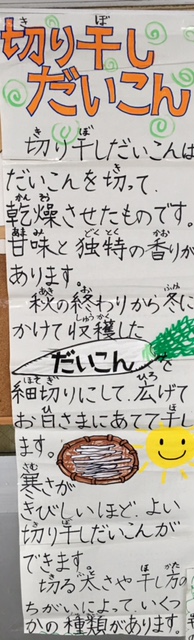 切り干し
だいこん
切り干しだいこんは
だいこんを切って、
乾燥させたものです。
甘味と独特の香りが
あります。
秋の終わりから冬に
かけて収穫した
だいこんを
細切りにして、広げて
お日さまにあてて干し
ます。
寒さが
きびしいほど、よい
切り干しだいこんが
できます。
切る太さや干し方の
ちがいによって、いくつ
かの種類があります。